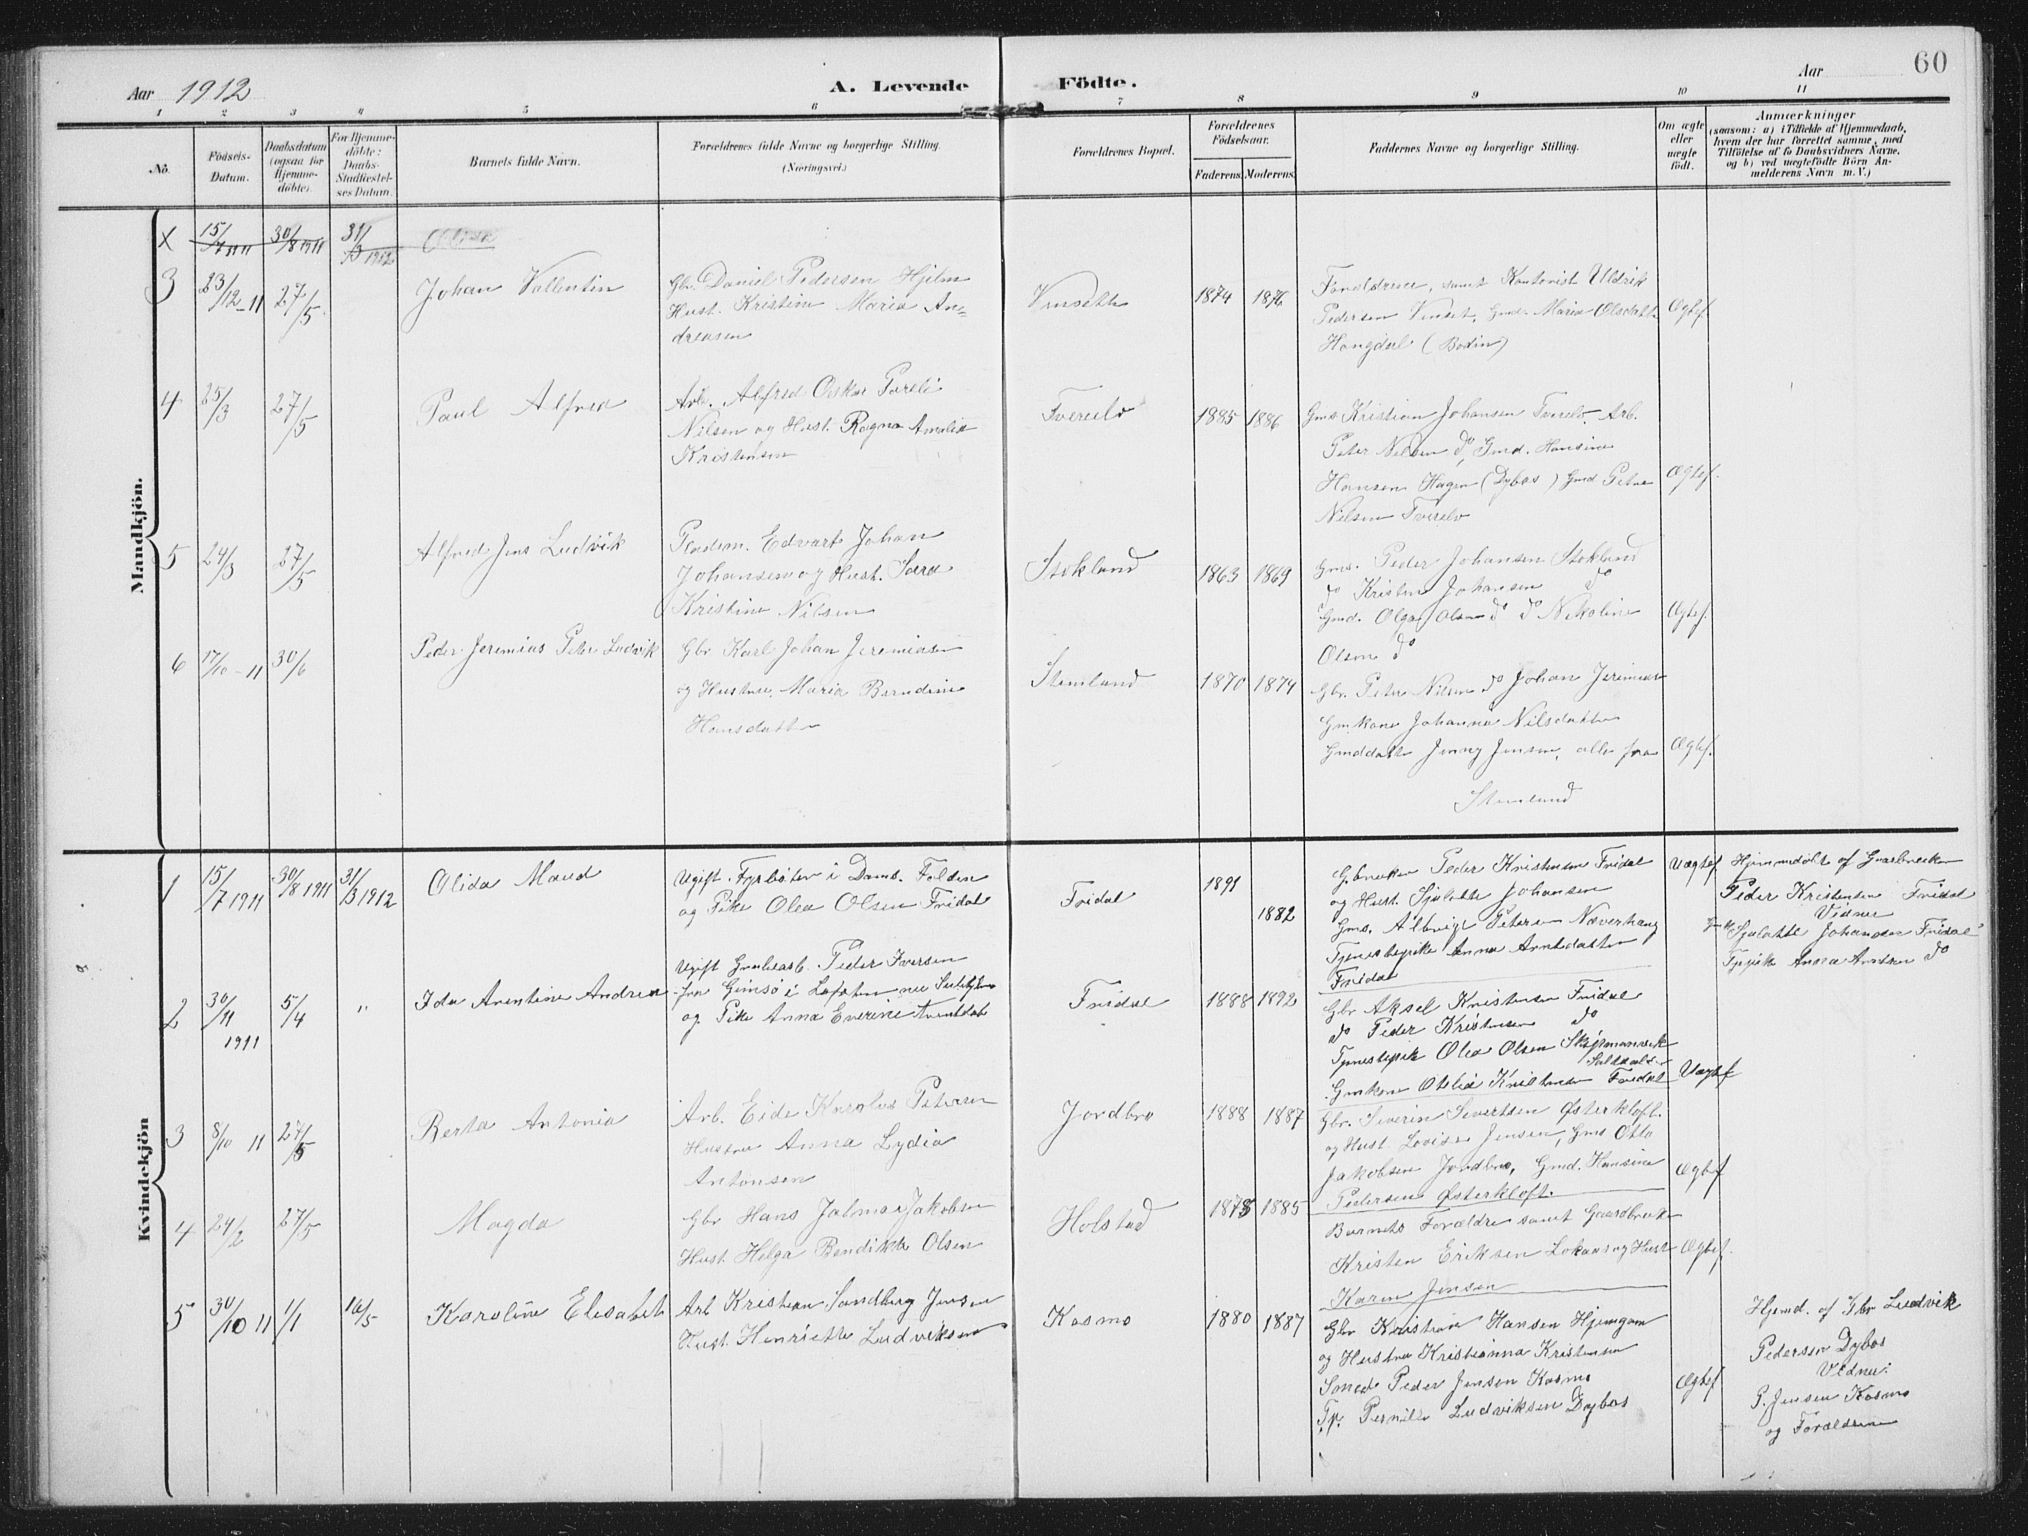 60
Aar 1912
A. Levende Födte.
Aar
1 2 3 4 5 6 7 8 9 10 11
No.
Födsels-Datum.
Daabsdatum (ogsaa for Hjemme-döbte).
For Hjemme-döbte: Daabs-Stadfæstel-ses Datum.
Barnets fulde Navn.
Forældrenes fulde Navne og borgerlige Stilling.
(Næringsvei.)
Forældrenes Bopæl.
Forældrenes Födselsaar.
Faderens. Moderens.
Faddernes Navne og borgerlige Stilling.
Om ægte eller uægte födt.
Anmærkninger
(saasom: a) i Tilfælde af Hjemmedaab,
hvem der har forrettet samme, med
Tilföielse af to Daabsvidners Navne,
og b) ved uægtefödte Börn An-
melderens Navn m. V.)
Mandkjön.
X 15/7 1911 30/8 1911 31/3 1912 Olida
3 23/12-11 27/5 Johan Vallentin
Gbr. Daniel Pedersen Hjelm
Hust. Kristine Maria An=
dreasen
Vinsett 1874 1876
Forældrene, samt Kontorist Uldrik
Pedersen Vinset, Gmd. Maria Olsdatt.
Hongdal (Bodin)
Ægtef
4 25/3 27/5 Paul Alfred
Arb. Alfred Oskar Toreli
Nilsen og Hust. Ragna Amalia
Kristensen
Tverelv 1885 1886
Gms Kristian Johansen Tverelv. Arb.
Peter Nilsen do, Gmd. Hansine
Hansen Hagen (Dybos) Gmd Petra
Nilsen Tverelv
Ægtef.
5 24/3 27/5 Alfred Jens Ludvik
Pladsm. Edvart Johan
Johansen og Hust. Sara
Kristine Nilsen
Stokland 1863 1869
Gms. Peder Johansen Stokland
do Kristen Johansen do
Gmd. Olga Olsen do do Nikoline
Olsen do
Ægtef.
6 17/10-11 30/6 Peder Jeremias Peter Ludvik
Gbr Karl Johan Jeremiasen
og Hustru, Maria Berndine
Hansdatter
Stemland 1870 1874
Gbr. Peter Nilsen do Johan Jeremias
Gmkone Johanna Nilsdatter
Gmddatt Jenny Jensen, alle fra
Stemland
Ægtef.
Kvindekjön
1 15/7 1911 30/8 1911 31/3 1912 Olida Maud
Ugift Fyrböter i Dams. Folden
og Pike Olea Olsen Fridal
Fridal 1891 1882
Gbruker Peder Kristensen Fridal
og Hust Sjalotte Johansen
Gms. Albrigt Petersen Næverhaug
Tjenestepike Anna Arntsdatter
Fridal
Uægtef
Hjemmedöbt af Gaardbruker
Peder Kristensen Fridal
Vidner
Gmk Sjalotte Johansen Fridal
Tjpike Anna Arntsen do
2 30/11 1911 5/4 " Ida Arentine Andrea
Ugift Grubearb. Peder Iversen
fra Gimsö i Lofoten nu Sulitjelma
og Pike Anna Everine Arentdat
Fridal 1888 1892
Gbr Aksel Kristensen Fridal
do Peder Kristensen do
Tjenestepik Olea Olsen Skjömanvik
Saltdal
Gmkone Otelia Kristensen Fridal
Uægtef
3 8/10 11 27/5 Berta Antonia
Arb. Eide Karolus Petersen
Hustru Anna Lydia
Antonsen
Jordbro 1888 1887
Gbr. Severin Sivertsen Østerkloft.
og Hust. Lovise Jensen, Gms Otto
Jakobsen Jordbro, Gmd. Hansine
Pedersen Østerkloft.
Ægtef
4 24/2 27/5 Magda
Gbr Hans Jalmar Jakobsen
Hust. Helga Bendikte Olsen
Holstad 1875 1885
Barnets Forældre samt Gaardbruker
Kristen Eriksen Lokaas og Hust
Karen Jensen
Ægtef.
5 30/10 11 1/1 16/5 Karoline Elisabet
Arb Kristian Sandberg Jensen
Hust. Henriette Ludviksen
Kosmo 1880 1887
Gbr Kristian Hansen Hjemgam
og Hustru Kristianna Kristensen
Smed Peder Jensen Kosmo
Tp. Pernille Ludviksen Dybos
Ægtef
Hjemd. af Gbr Ludvik
Pedersen Dybos
Vidner:
P. Jensen Kosmo
og Forældrene